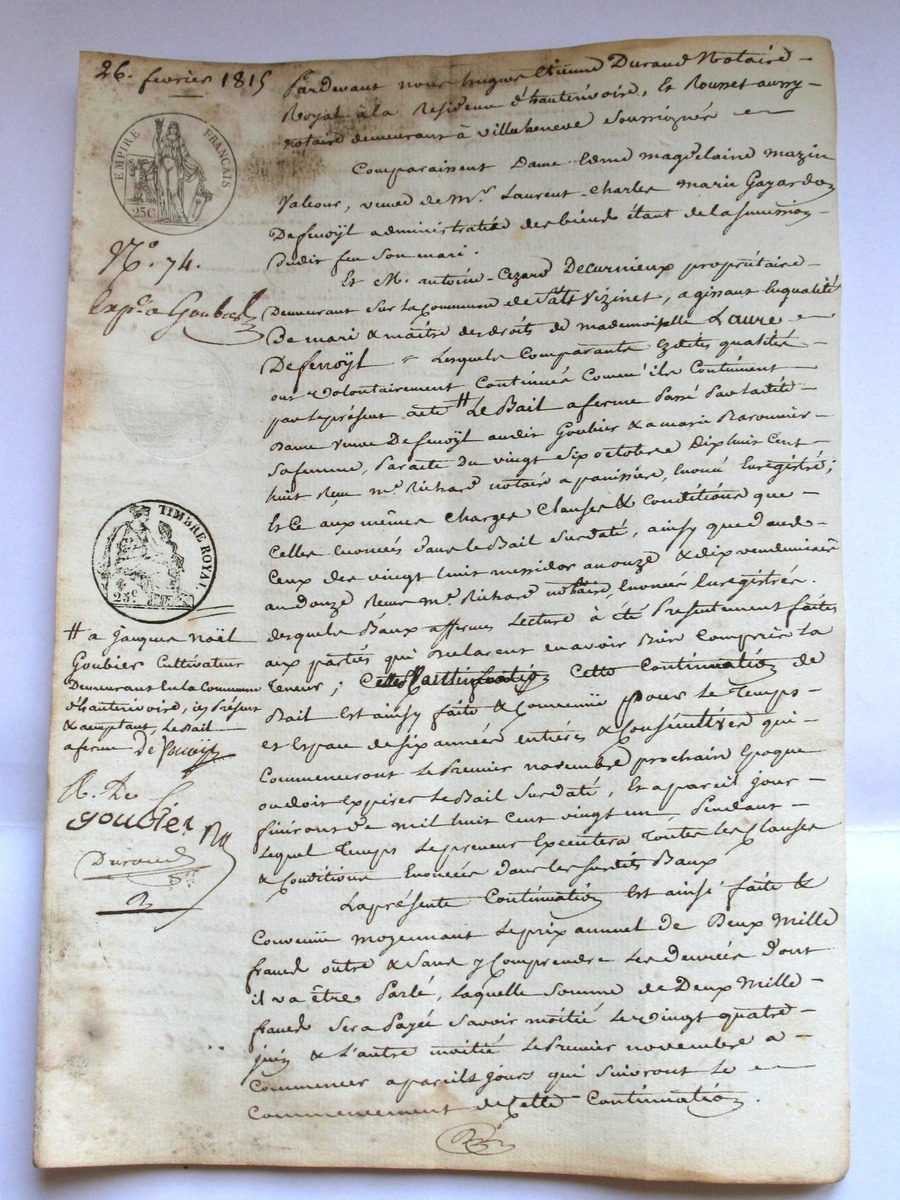 26. fevrier 1815
EMPIRE FRANÇAIS
25C
N.º 74.
Exp.ée a Goubier
TIMBRE ROYAL.
25c
Pardevant nous hugues Etienne Durand Notaire
Royal à la Résidence d'hauterivoire, Et Rousset aussy
notaire demeurant à villecheneve soussignés
Comparaissent Dame Edme magdelaine mazin
Valeour, veuve de M.r Laurent-Charles Marie Gayardon
Defenoÿl administratrice des biens étant de la succession
Dudit feu Son mari.
Et M. antoine-Cezard Decurnieux propriétaire
Demeurant Sur la Commune de Salt Vizinet, agissant En qualité
De mari & maître des droits de mademoiselle Laure
Defenoÿl = Lesquels Comparants Ezdites qualités
ont volontairement Continués Comm'ils Continuent
par le présent acte # Le Bail a ferme Passé Par ladite
Dame Veuve Defenoÿl audit Goubier & a marie
Sa femme, Par acte du vingt Six octobre Dix huit Cent
huit Reçu M.e Richard notaire a panissière, Enoncé Enregistré;
Et Ce aux mêmes Charges Clauses & Conditions que
Celles Enoncés dans le Bail Surdaté, ainsy que dans
Ceux des vingt huit messidor an onze & dix vendemiaire
an douze Reçus M.e Richard notaire, Enoncés Enregistrés.
desquels Baux affermes Lecture à été Présentement faites
aux parties qui Déclarent en avoir Bien Compris la
Teneur; Cette Continuation de
Bail Est ainsy faite & Convenüe pour le Temps
et Espace de Six années entières & Consécutives qui
Commenceront Le Premier novembre prochain Epoque
ou doit Expirer Le Bail Surdaté, Et a pareil jour
finiront de mil huit Cent vingt un, Pendant
Lequel Temps Le preneur Executera Toutes les Clauses
& Conditions Enoncées dans les Susdits Baux
La présente Continuation Est ainsi faite &
Convenüe moyennant Le prix annuel de Deux Mille
francs outre & Sans y Comprendre Les Denrées Dont
il va être Parlé, Laquelle Somme de Deux Mille
francs Sera Payée Savoir moitié Le vingt quatre
juin & L'autre moitié Le Premier novembre a
Commencer a pareils jours qui Suivront Le
Commencement de Cette Continuation.
# a Jacques Noël
Goubier Cultivateur
Demeurant En la Commune
d'hauterivoire, icy Présent
& acceptant, Le Bail
a ferme
goubier
Durand